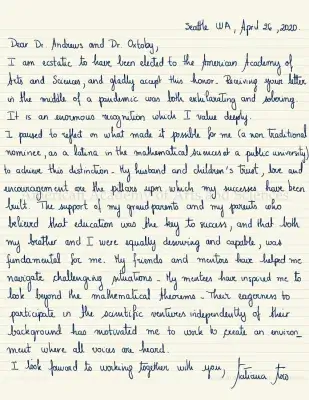 Seattle WA, April 26, 2020.
Dear Dr. Andrews and Dr. Oxtoby,
I am ecstatic to have been elected to the American Academy of
Arts and Sciences, and gladly accept this honor. Receiving your letter
in the middle of a pandemic was both exhilarating and sobering.
It is an enormous recognition which I value deeply.
I paused to reflect on what made it possible for me (a non traditional
nominee, as a latina in the mathematical sciences at a public university)
to achieve this distinction. My husband and children's trust, love and
encouragement are the pillars upon which my successes have been
built. The support of my grandparents and my parents who
believed that education was the key to success, and that both
my brother and I were equally deserving and capable, was
fundamental for me. My friends and mentors have helped me
navigate challenging situations. My mentees have inspired me to
look beyond the mathematical theorems. Their eagerness to
participate in the scientific ventures independently of their
background has motivated me to work to create an environ
ment where all voices are heard.
I look foward to working together with you, Tatiana Toro